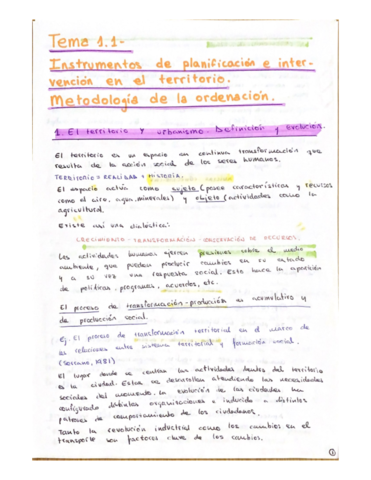 Tema 1.1-
Instrumentos de planificación e inter-
vención en el territorio.
Metodología de la ordenación.
1. El territorio y urbanismo. Definición y evolución.
El territorio es un espacio en continua transformación que
resulta de la acción social de los seres humanos.
TERRITORIO = REALIDAD + HISTORIA.
El espacio actúa como sujeto (posee características y recursos
como el aire, agua, minerales) y objeto (actividades como la
agricultura).
Existe así una dialéctica:
CRECIMIENTO - TRANSFORMACIÓN - OBSERVACIÓN DE RECURSOS.
Las actividades humanas ejercen presiones sobre el medio
ambiente, que pueden producir cambios en su estado
y a su vez una respuesta social. Esto hace la aparición
de políticas, programas, acuerdos, etc.
El proceso de transformación-producción es acumulativo y
de producción social.
Ej. El proceso de transformación territorial en el marco de
las relaciones entre sistema territorial y formación social.
(1981)
El lugar donde se centran las actividades dentro del territorio
es la ciudad. Estas se desarrollan atendiendo las necesidades
sociales del momento. La evolución de las ciudades han
configurado distintas organizaciones e inducido a distintos
patrones de comportamiento de los ciudadanos.
Tanto la revolución industrial como los cambios en el
transporte son factores clave de los cambios.
1